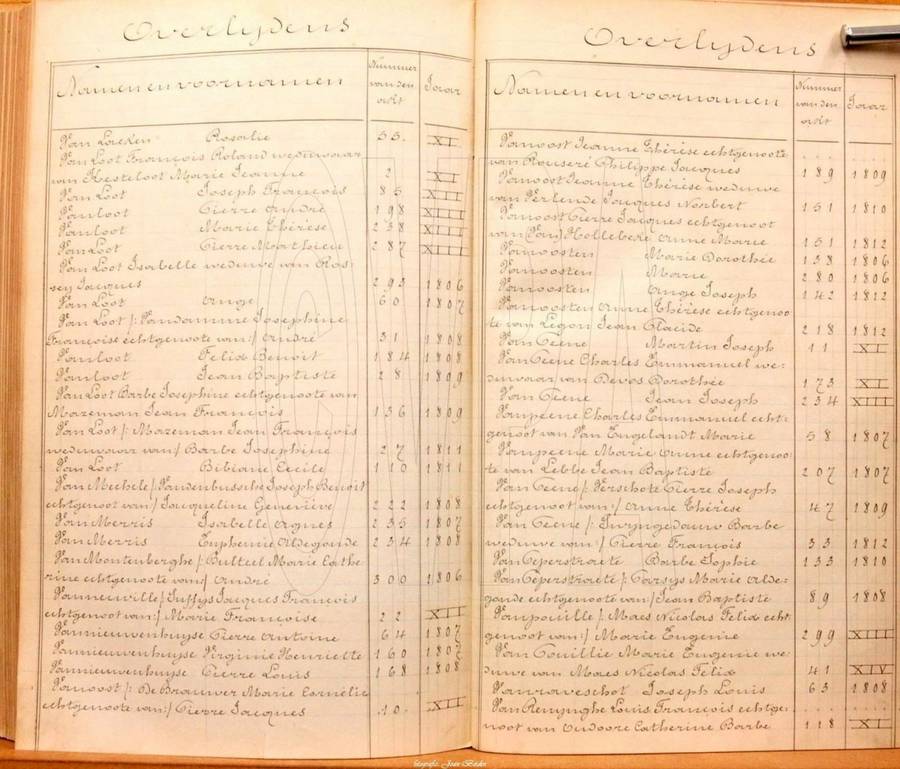 Overlydens
Namen en voornamen
Nummer van den akt
Jaar
Van Laeken Rosalie 55. XI
Van Loot François Roland weduwaar
van Kesteloot Marie Jeanne 2 XI
Van Loot Joseph François 85 XII
Vanloot Pierre André 198 XIII
Vanloot Marie Thérèse 238 XIII
Van Loot Pierre Mathieu 287 XIII
Van Loot Isabelle weduwe van Ros-
sey Jacques 293 1806
Van Loot Ange 60 1807
Van Loot /: Vandamme Josephine
Françoise echtgenote van:/ André 31 1808
Vanloot Felix Benoit 184 1808
Vanloot Jean Baptiste 28 1809
Van Loot Barbe Josephine echtgenoote van
Mazeman Jean François 136 1809
Van Loot /: Mazeman Jean François
weduwaar van:/ Barbe Josephine 27 1811
Van Loot Bibiane Cecile 110 1811
Van Mechele /: Vandenbussche Joseph Benoit
echtgenoot van:/ Jacqueline Geneviève 222 1808
Van Merris Isabelle Agnes 235 1807
Van Merris Euphemie Aldegonde 234 1808
Van Montenberghe /: Bulteel Marie Cathe-
rine echtgenoote van:/ André 300 1806
Vanneuville /: Juffys Jacques François
echtgenoot van:/ Marie Françoise 22 XII
Vannieuwenhuyse Pierre Antoine 64 1807
Vannieuwenhuyse Virginie Henriette 160 1807
Vannieuwenhuyse Pierre Louis 168 1808
Vanoost /: De Brauwer Marie Cornélie
echtgenoote van:/ Pierre Jacques 10. XII
Overlydens
Namen en voornamen
Nummer van den akt
Jaar
Vanoost Jeanne Thérèse echtgenoote
van Rouseré Philippe Jacques 189 1809
Vanoost Jeanne Thérèse weduwe
van Perlende Jacques Norbert 151 1810
Vanoost Pierre Jacques echtgenoot
van (Van) Hollebeke Anne Marie 151 1812
Vanoosten Marie Dorothée 138 1806
Vanoosten Marie 280 1806
Vanoosten Ange Joseph 142 1812
Vanoosten Anne Thérèse echtgenoo-
te van Legon Jean Placide 218 1812
Van Peene Martin Joseph 11 XI
Van Peene Charles Emmanuel we-
duwaar van Devos Dorothée 173 XI
Van Peene Jean Joseph 234 XIII
Vanpeene Charles Emmanuel echt-
genoot van Van Engelandt Marie 58 1807
Vanpeene Marie Anne echtgenoo-
te van Lebbe Jean Baptiste 207 1807
Van Peene /: Verschote Pierre Joseph
echtgenoot van:/ Anne Thérèse 47 1809
Van Peene /: Swyngedauw Barbe
weduwe van:/ Pierre François 33 1812
Van Peperstraete Barbe Sophie 133 1810
Van Peperstraete /: Carsys Marie Alde-
gonde echtgenoote van:/ Jean Baptiste 89 1808
Vanpouille /: Maes Nicolas Felix echt-
genoot van:/ Marie Eugenie 299 XIII
Van Pouillie Marie Eugenie we-
duwe van Maes Nicolas Felix 41 XIV
Vanraveschot Joseph Louis 63 1808
Van Renynghe Louis François echtge-
noot van Oudoore Catherine Barbe 118 XI